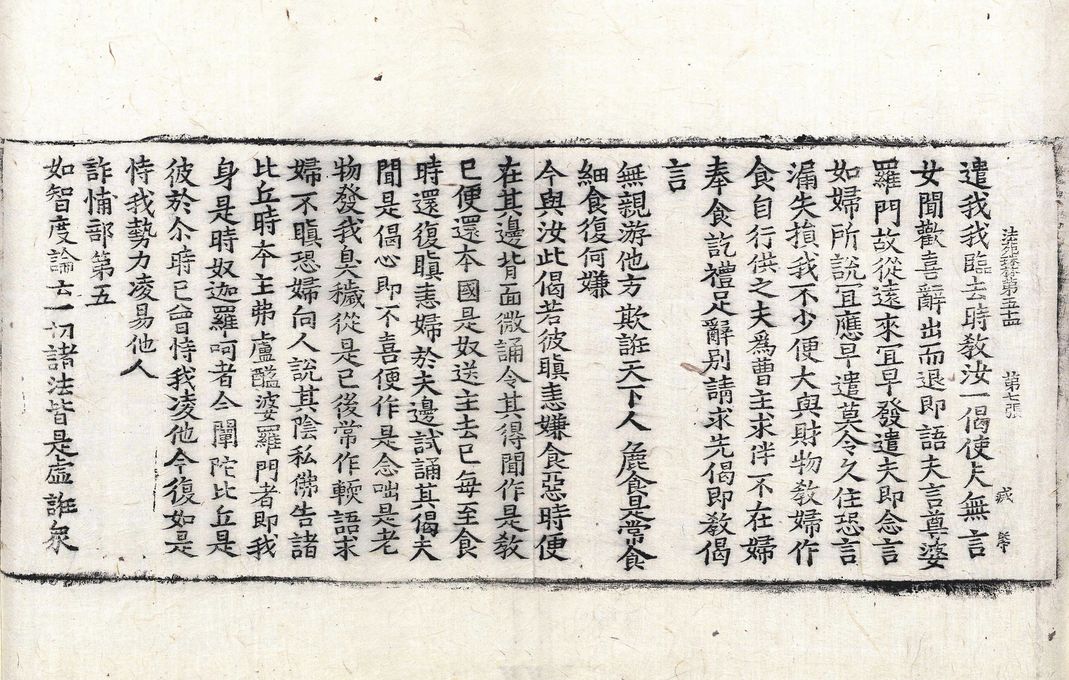 法苑珠林第五十四 第七張 𢧵
遣我我臨去時教汝一偈使夫無言
女聞歡喜辭出而退即語夫言尊婆
羅門故從遠來宜早發遣夫即念言
如婦所說宜應早遣莫令久住恐言
漏失損我不少便大與財物教婦作
食自行供之夫爲曹主求伴不在婦
奉食訖禮足辭別請求先偈即教偈
言
無親游他方 欺誑天下人 麁食是常食
細食復何嫌
今與汝此偈若彼瞋恚嫌食惡時便
在其邊背面微誦令其得聞作是教
已便還本國是奴送主去已每至食
時還復瞋恚婦於夫邊試誦其偈夫
聞是偈心即不喜便作是念咄是老
物發我臭穢從是已後常作軟語求
婦不瞋恐婦向人說其陰私佛告諸
比丘時本主弗盧醯婆羅門者即我
身是時奴迦羅呵者今闡陀比丘是
彼於尒時已曾恃我凌他今復如是
恃我勢力凌易他人
詐慵部第五
如智度論云一切諸法皆是虛誑衆